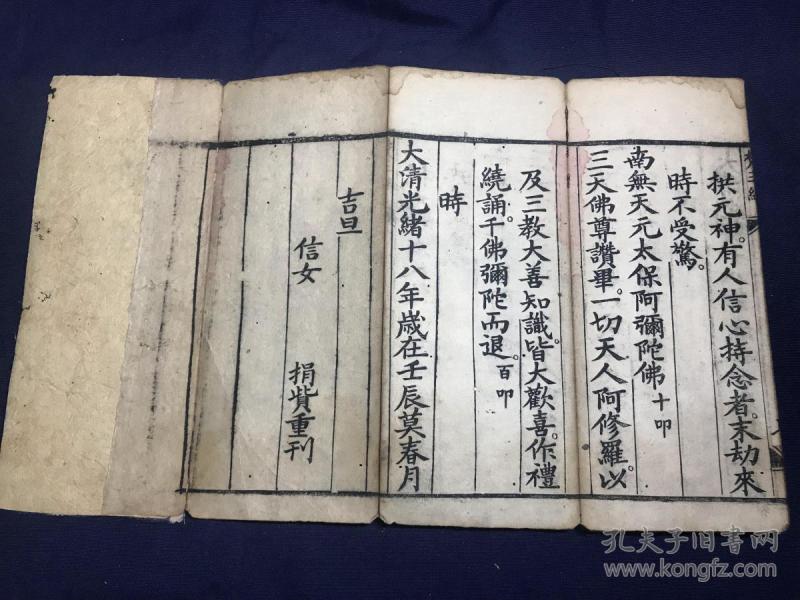 拱元神。有人信心持念者。末劫來
時不受驚。
南無天元太保阿彌陀佛 十叩
三大佛尊讚畢。一切天人阿修羅。以
及三教大善知識。皆大歡喜。作禮
繞誦。千佛彌陀而退。百叩
時
大清光緒十八年歲在壬辰莫春月
吉旦
信女
捐貲重刊
孔夫子旧书网
www.kongfz.com